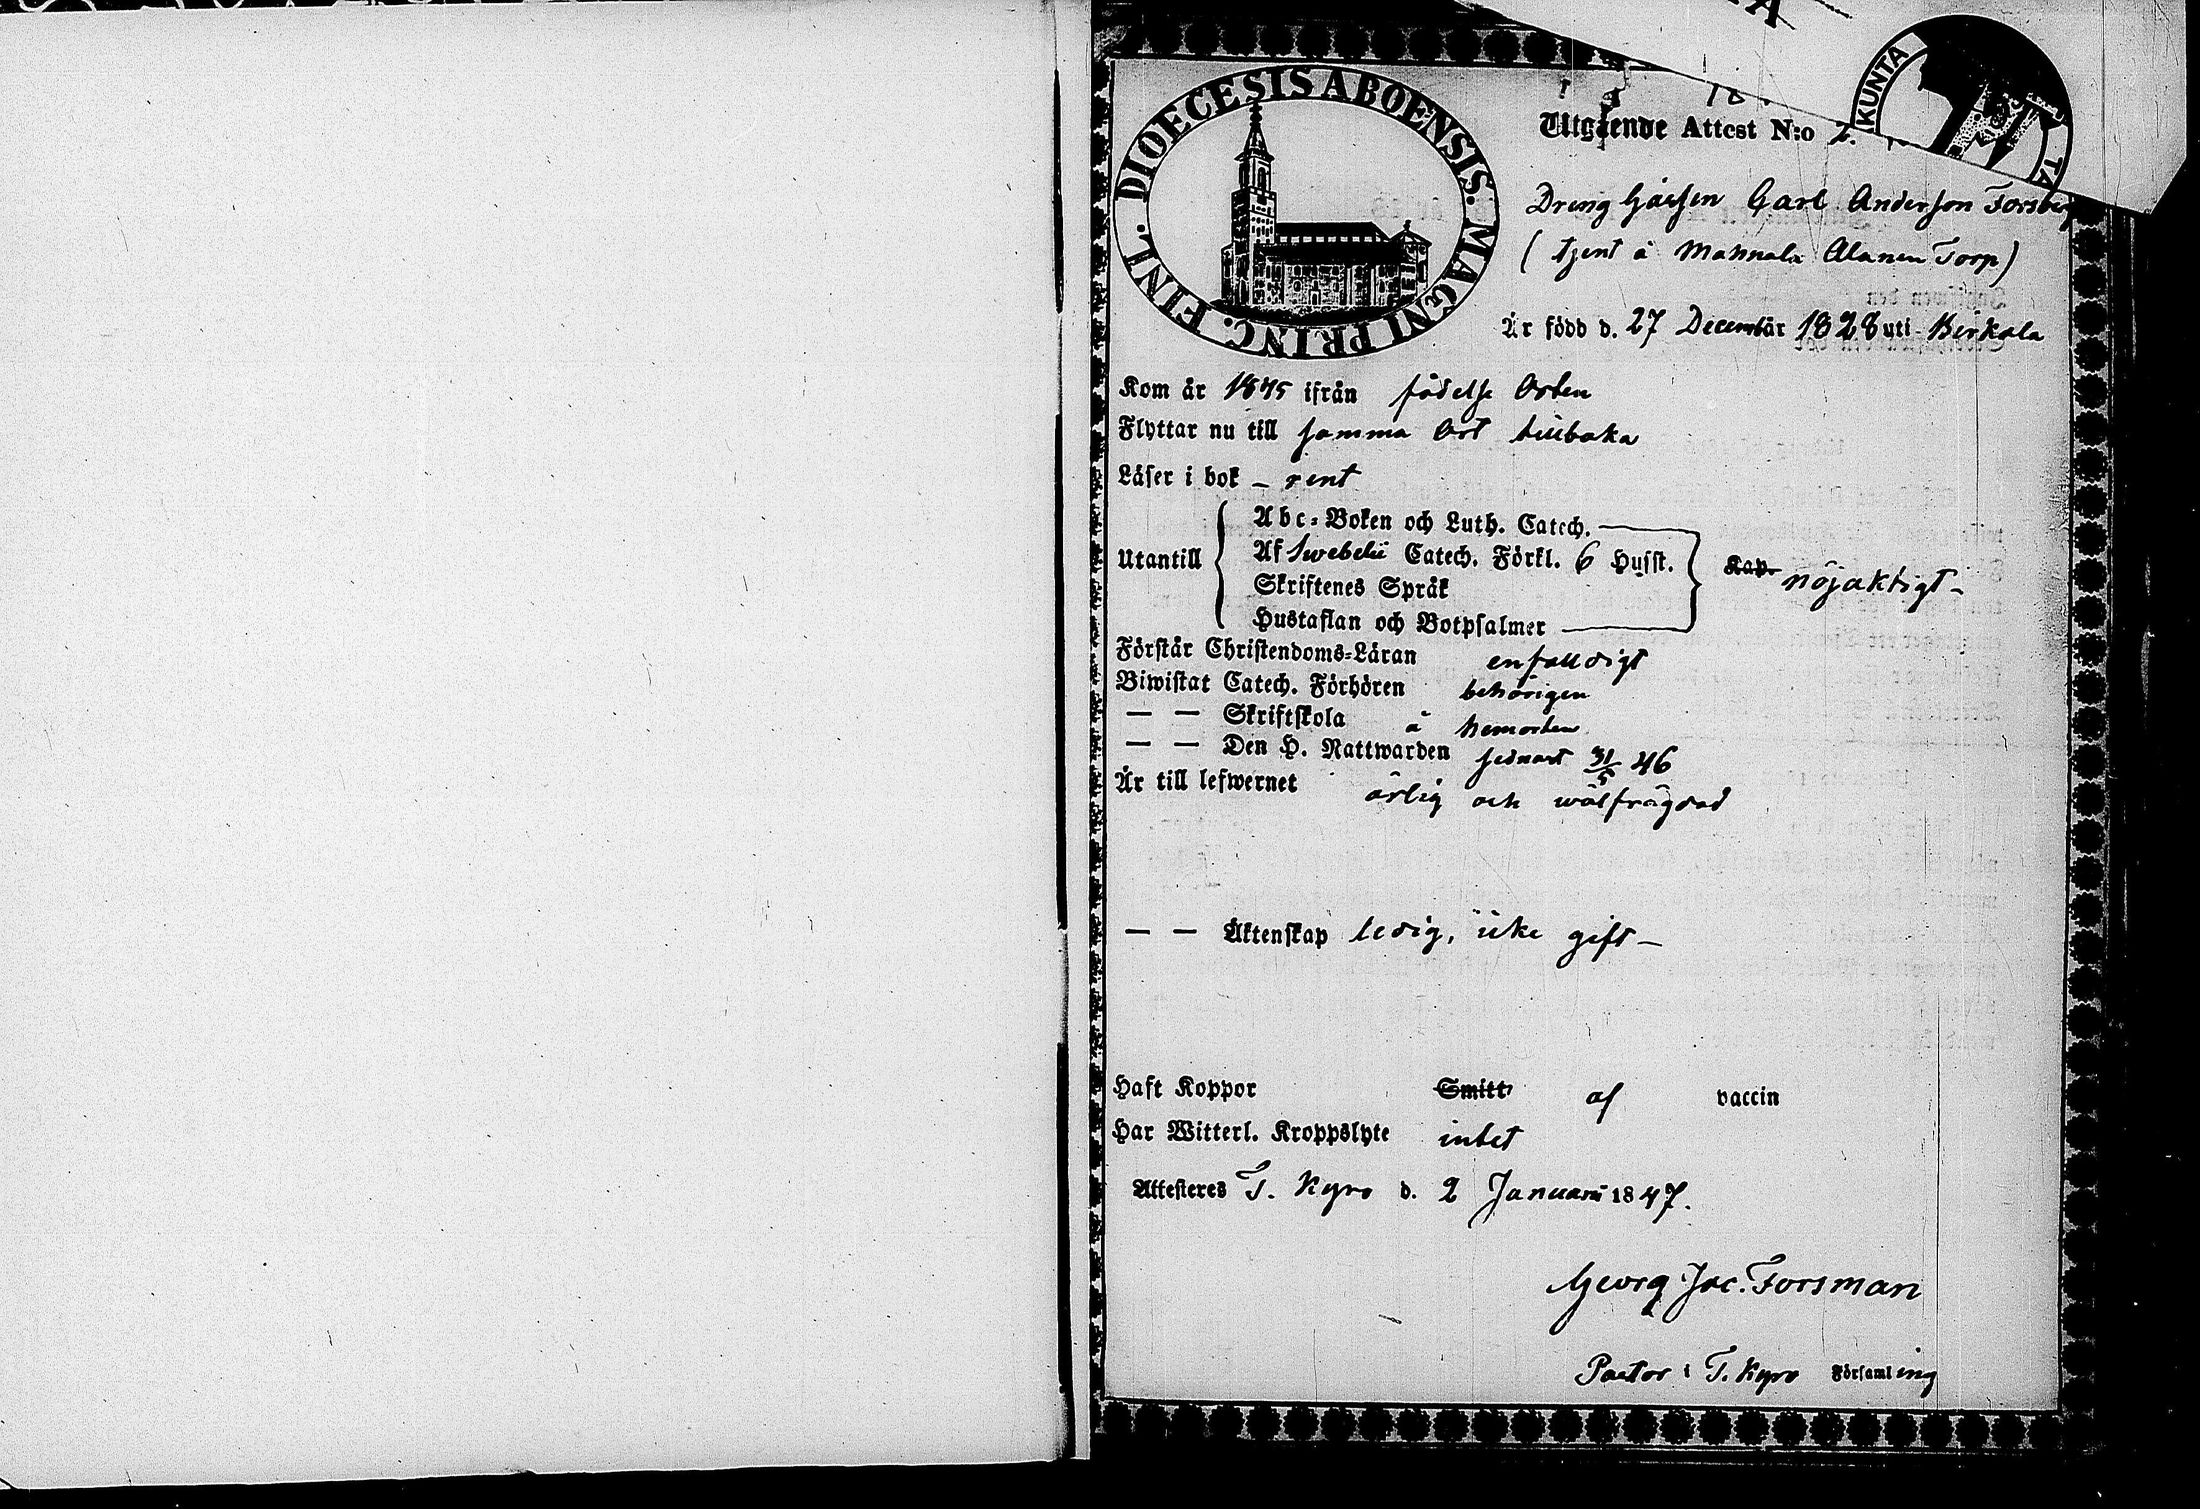 KUNTA
TA
DIOECESIS ABOENSIS. MAGNI PRINC. FINL.
Utgående Attest N:o
Dreng Gåssen Carl Andersson Forsberg
( tjent å Mannala Alanen Torp)
Är född d. 27 December 1828 uti Birkala
Kom år 1845 ifrån födelse Orten
Flyttar nu till samma Ort tillbaka
Läser i bok - rent
Abc-Boken och Luth. Catech.
Utantill Af Swebelii Catech. Förkl. 6 Hufst. Kap. nöjaktigt -
Skriftenes Språk
Hustaflan och Botpsalmer
Förstår Christendoms-Läran enfalldigt
Biwistat Catech. Förhören behörigen
— — Skriftskola å hemorten
— — Den H. Nattwarden sednast 31/5 46
Är till lefwernet ärlig och wälfrägdad
— — Äktenskap ledig, icke gift -
Haft Koppor Smitt af vaccin
Har Witterl. Kroppslyte intet
Attesteres T. Kyro d. 2 Januarii 1847.
Georg Jac. Forsman
Pastor i T. Kyro Församling